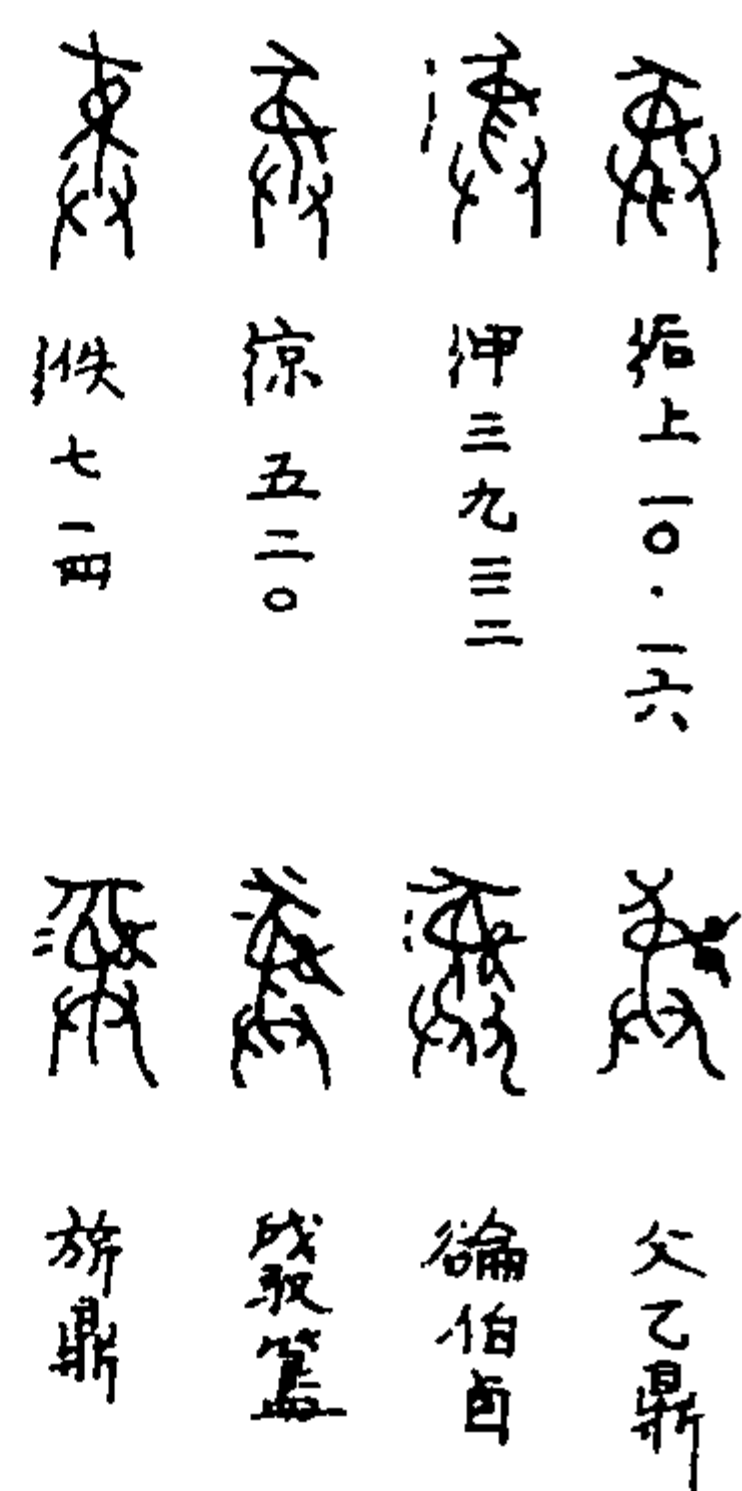 后上一〇·一六
甲三九三二
京五二〇
佚七一四
父乙鼎
伯卣
簋
旂鼎